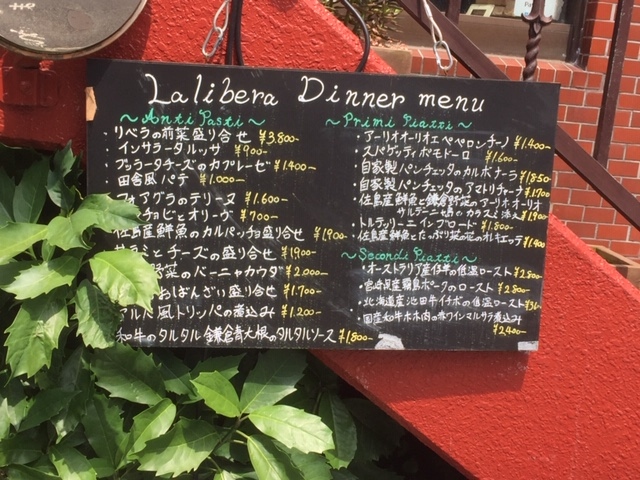 Lalibera Dinner menu
~Anti Pasti~
・リベラの前菜盛り合せ ¥3.800-
・インサラータルッサ ¥900-
・ブッラータチーズのカプレーゼ ¥1.400-
・田舎風パテ ¥1.000-
フォアグラのテリーヌ ¥1.600-
チョビとオリーヴ ¥700-
佐島産鮮魚のカルパッチョ盛り合せ ¥1,900-
とチーズの盛り合せ ¥1900-
野菜のバーニャカウダ ¥2,000-
おばんざい盛り合せ ¥1.700-
風トリッパの煮込み ¥1.200-
和牛のタルタル 鎌倉青大根のタルタルソース ¥1,800-
~Primi Piatti~
・アーリオオーリオエペペロンチーノ ¥1,400-
・スパゲッティポモドーロ ¥1.600-
自家製パンチェッタのカルボナーラ ¥1850-
自家製パンチェッタのアマトリチャーナ ¥1700
佐島産鮮魚と鎌倉野菜のアーリオオーリオ
サルデーニャ産のカラスミ添え ¥1900-
・トルテッリーニインブロード ¥1.800-
佐島産鮮魚とたっぷり菜花のオレキエッテ ¥1900
~Secondi Piatti~
・オーストラリア産仔羊の低温ロースト ¥2800-
・宮崎県産霧島ポークのロースト ¥2800-
・北海道産池田牛イチボの低温ロースト
・国産和牛ホホ肉の赤ワインマルサラ煮込み
¥2,400-